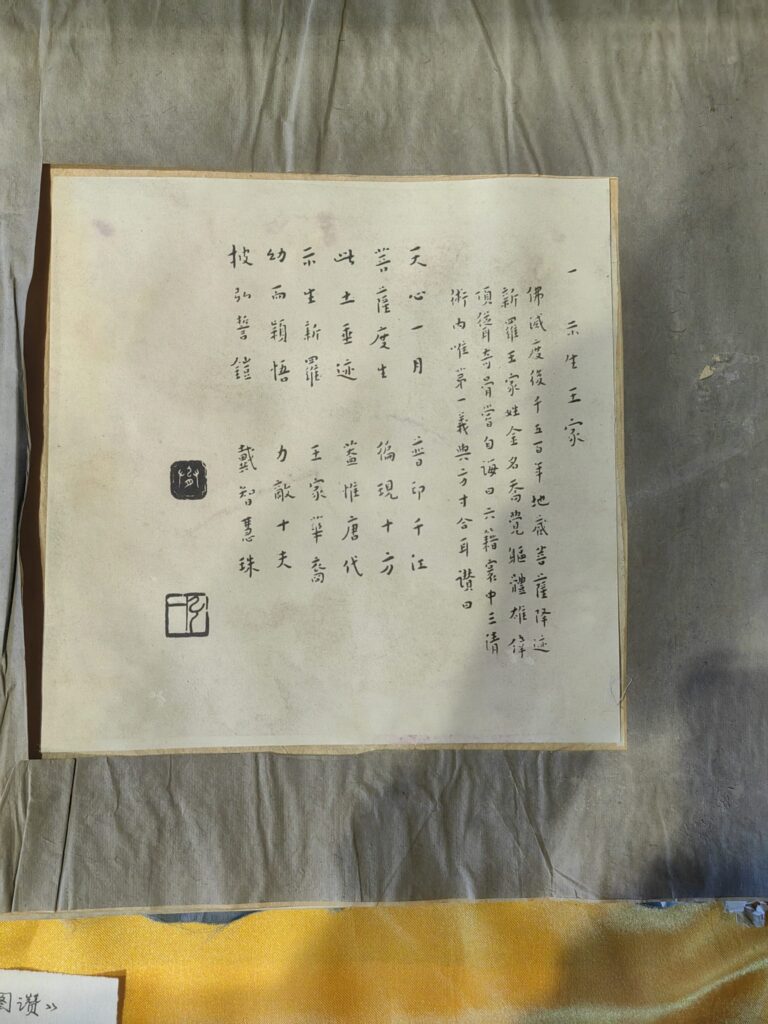 一 示生王家
佛滅度後千五百年地藏菩薩降迹
新羅王家姓金名喬覺軀體雄偉
頂聳奇骨嘗自誨曰六籍寰中三清
術內唯第一義與方寸合耳讚曰
天心一月 普印千江
菩薩度生 徧現十方
此土垂迹 蓋惟唐代
示生新羅 王家華裔
幼而穎悟 力敵十夫
披弘誓鎧 戴智慧珠
圖讚》